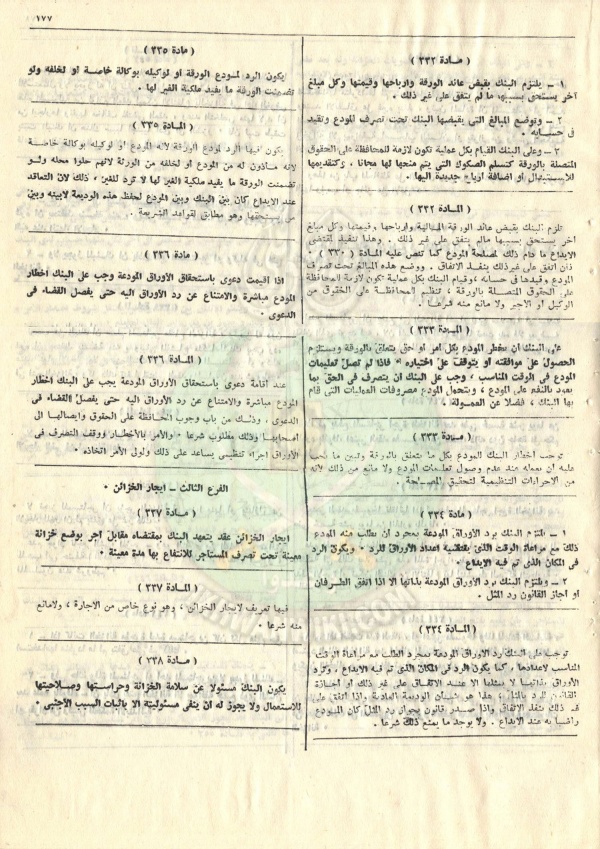 ١٧٧
( مادة ٣٣٢ )
١ – يلتزم البنك بقبض عائد الورقة وارباحها وقيمتها وكل مبلغ
آخر يستحق بسببها ما لم يتفق على غير ذلك .
٢ – وتوضع المبالغ التى يقبضها البنك تحت تصرف المودع وتقيد
فى حسابه .
٣ – وعلى البنك القيام بكل عملية تكون لازمة للمحافظة على الحقوق
المتصلة بالورقة كتسلم الصكوك التى يتم منحها لها مجانا ، وكتقديمها
للاستبدال أو اضافة ارباح جديدة اليها .
( المادة ٣٣٢ )
تلزم البنك بقبض عائد الورقة المالية وارباحها وقيمتها وكل مبلغ
آخر يستحق بسببها مالم يتفق على غير ذلك . وهذا تنفيذ لمقتضى
الايداع ما دام ذلك لمصلحة المودع كما تنص عليه المادة ( ٣٣٠ )
فان اتفق على غير ذلك ينفذ الاتفاق . ووضع هذه المبالغ تحت تصرف
المودع وقيدها فى حسابه ، وقيام البنك بكل عملية تكون لازمة للمحافظة
على الحقوق المتصلة بالورقة ، تنظيم للمحافظة على الحقوق من
الوكيل أو الأجير ولا مانع منه شرعا .
( المادة ٣٣٣ )
على البنك أن يخطر المودع بكل أمر أو حق يتعلق بالورقة ويستلزم
الحصول على موافقته أو يتوقف على اختياره . فاذا لم تصل تعليمات
المودع فى الوقت المناسب ، وجب على البنك أن يتصرف فى الحق بما
يعود بالنفع على المودع ، ويتحمل المودع مصروفات العمليات التى قام
بها البنك ، فضلا عن العمولة .
( مادة ٣٣٣ )
توجب اخطار البنك للمودع بكل ما يتعلق بالورقة وتبين ما يجب
عليه أن يعمله عند عدم وصول تعليمات المودع ولا مانع من ذلك لأنه
من الاجراءات التنظيمية لتحقيق المصلحة .
( مادة ٣٣٤ )
١ – يلتزم البنك برد الأوراق المودعة بمجرد أن يطلب منه المودع
ذلك مع مراعاة الوقت الذى يقتضيه اعداد الأوراق للرد . ويكون الرد
فى المكان الذى تم فيه الايداع .
٢ – ويلتزم البنك برد الأوراق المودعة بذاتها الا اذا اتفق الطرفان
أو أجاز القانون رد المثل .
( المادة ٣٣٤ )
توجب على البنك رد الأوراق المودعة بمجرد الطلب مع مراعاة الوقت
المناسب لاعدادها ، كما يكون الرد فى المكان الذى تم فيه الايداع ، وترد
الأوراق بذاتها لا مثلها الا عند الاتفاق على غير ذلك أو اجازة
القانون للرد بالمثل ، هذا هو شأن الوديعة العادية ، واذا اتفق على
ذلك ينفذ الاتفاق واذا صدر قانون يجواز رد المثل كان المودع
راضيا به عند الايداع . ولا يوجد ما يمنع ذلك شرعا .
( مادة ٣٣٥ )
يكون الرد لمودع الورقة أو لوكيله بوكالة خاصة أو لخلفه ولو
تضمنت الورقة ما يفيد ملكية الغير لها .
( المادة ٣٣٥ )
يكون فيها الرد لمودع الورقة لأنه المودع أو لوكيله بوكالة خاصة
لأنه مأذون له من المودع أو لخلفه من الورثة لأنهم حلوا محله ولو
تضمنت الورقة ما يفيد ملكية الغير لها لا ترد للغير ، ذلك لأن التعاقد
عند الايداع كان بين البنك وبين المودع لحفظ هذه الوديعة لابينه وبين
من يستحقها وهو مطابق لقواعد الشريعة .
( مادة ٣٣٦ )
اذا اقيمت دعوى باستحقاق الأوراق المودعة وجب على البنك اخطار
المودع مباشرة والامتناع عن رد الأوراق اليه حتى يفصل القضاء فى
الدعوى .
( المادة ٣٣٦ )
عند اقامة دعوى باستحقاق الأوراق المودعة يجب على البنك اخطار
المودع مباشرة والامتناع عن رد الأوراق اليه حتى يفصل القضاء فى
الدعوى ، وذلك من باب وجوب المحافظة على الحقوق وايصالها الى
أصحابها وذلك مطلوب شرعا . والأمر بالأخطار ووقف التصرف فى
الأوراق اجراء تنظيمى يساعد على ذلك ولولى الأمر اتخاذه .
الفرع الثالث – ايجار الخزائن .
( مادة ٣٣٧ )
ايجار الخزائن عقد يتعهد البنك بمقتضاه مقابل أجر بوضع خزانة
معينة تحت تصرف المستأجر للانتفاع بها مدة معينة .
( المادة ٣٣٧ )
فيها تعريف لايجار الخزائن ، وهو نوع خاص من الاجارة ، ولامانع
منه شرعا .
( مادة ٣٣٨ )
يكون البنك مسئولا عن سلامة الخزانة وحراستها وصلاحيتها
للاستعمال ولا يجوز له أن ينفى مسئوليته الا باثبات السبب الأجنبى .